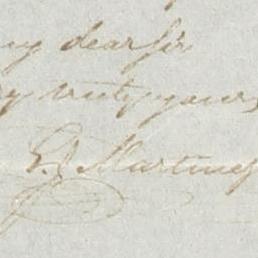 my dear sir
truly yours
E. J. Martinez